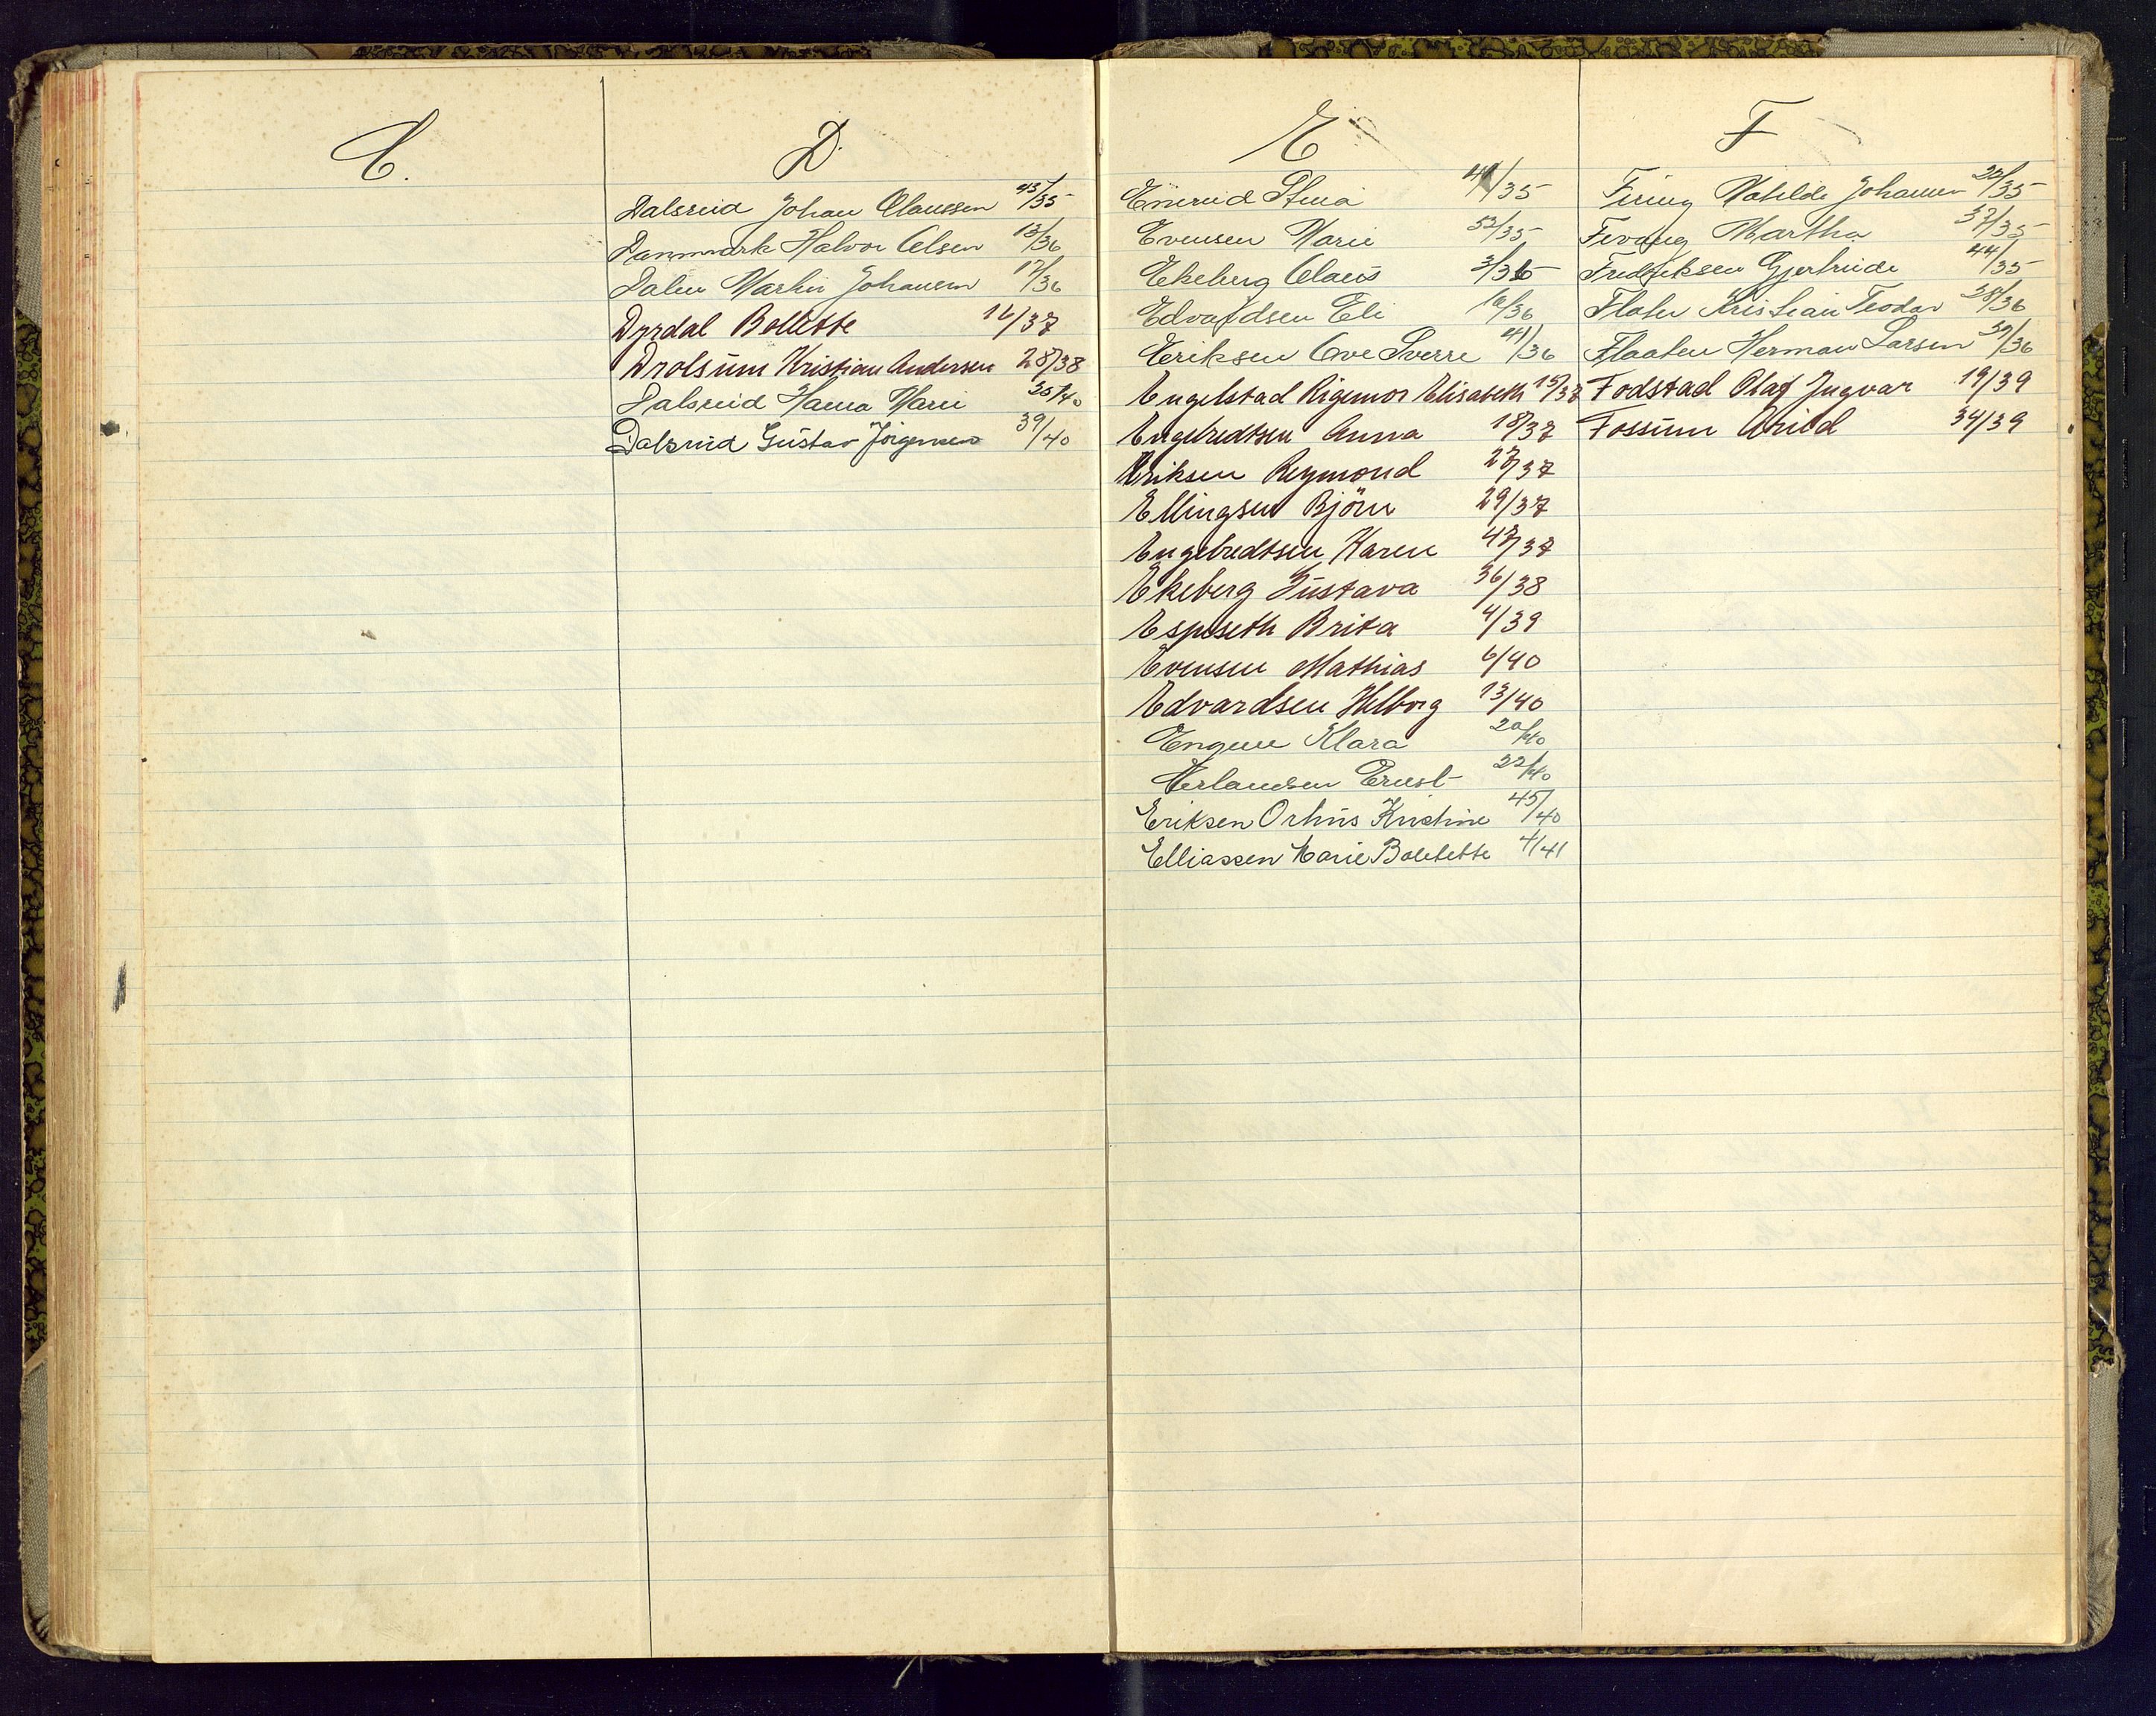 C.
D.
Dalsrud Johan Claussen 43/35
Danmmark Halvor Olsen 13/36
Dalen Martin Johansen 17/36
Dyrdal Bollette 16/37
Drolsum Kristian Andersen 28/38
Dalsrud Hanna Marie 35/40
Dalsrud Gustav Jörgensen 39/40
E
Enerud Stina 41/35
Evensen Marie 52/35
Ekeberg Claus 3/36
Edvardsen Eli 16/36
Eriksen Ove Sverre 41/36
Engelstad Rigemor Elisabeth 15/37
Engebredtsen Anna 18/37
Eriksen Reymond 27/37
Ellingsen Björn 29/37
Engebredtsen Karen 47/37
Ekeberg Gustava 36/38
Espeseth Brita 4/39
Evensen Mathias 6/40
Edvardsen Helborg 13/40
Engene Klara 20/40
Erlandsen Ernst 22/40
Eriksen Orhus Kristine 45/40
Elliassen Marie Boletette 4/41
F
Firing Matilde Johansen 22/35
Fevang Martha 37/35
Fredriksen Gjertrude 44/35
Flaten Kristian Teodor 38/36
Flaaten Herman Larsen 39/36
Fodstad Olaf Ingvar 19/39
Fossum Arild 34/39